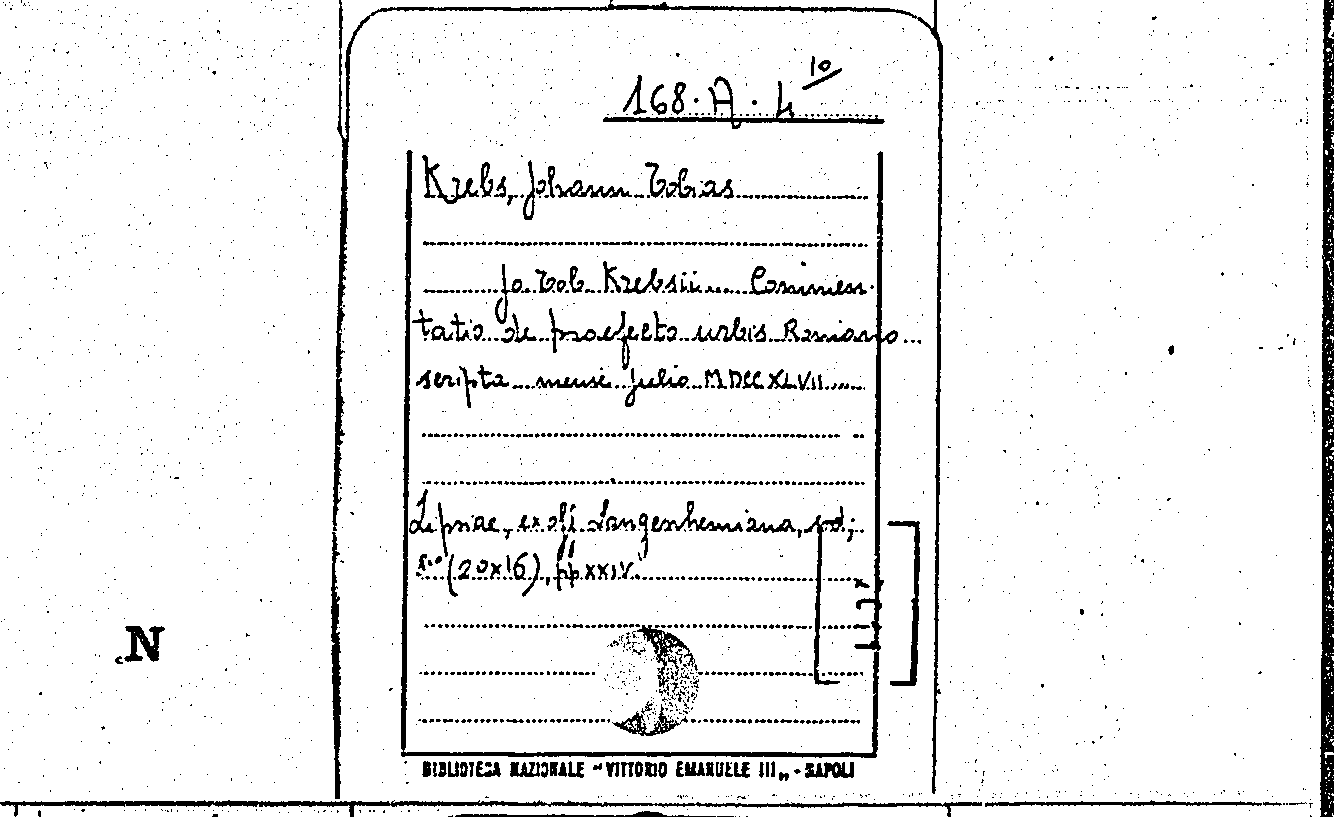 168. A. 4 10
Krebs, Johann Tobias
Jo Tob Krebsii... Commen-
tatio de praefecto urbis Romano...
scripta mense Julio MDCCXLVII....
Lipsiae, ex off Langenhemiana, s.d.;
8° (20x16), pp XXIV.
N
BIBLIOTECA NAZIONALE "VITTORIO EMANUELE III„ - NAPOLI